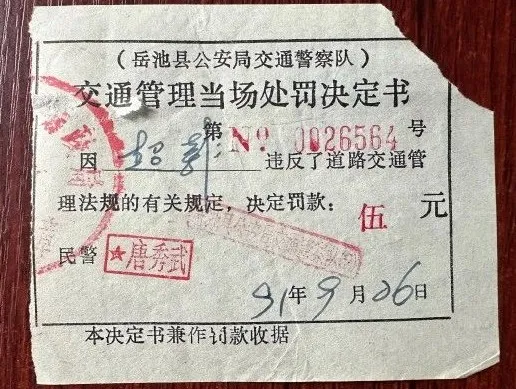 （岳池县公安局交通警察队）
交通管理当场处罚决定书
第 Nº 0026564 号
因 超 违反了道路交通管
理法规的有关规定，决定罚款： 伍 元
民警 ★唐秀武
91年9月26日
本决定书兼作罚款收据